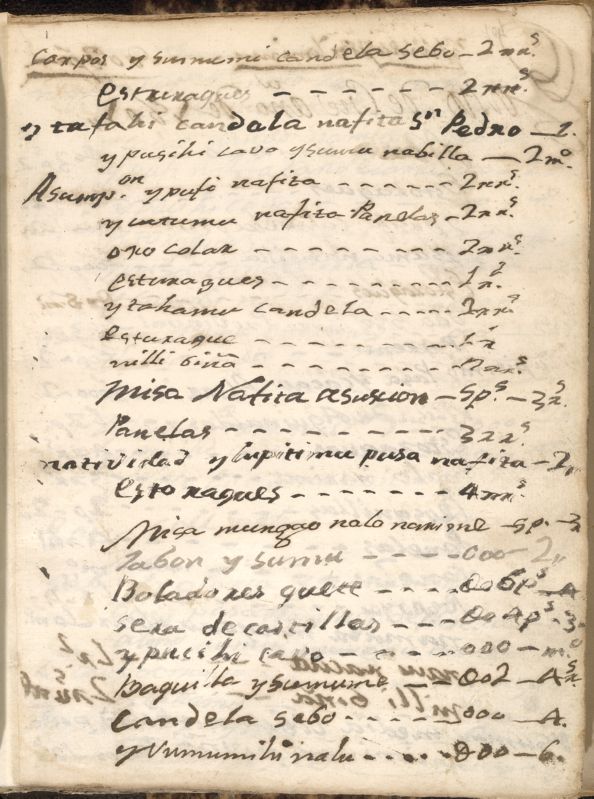 corpos y sumumi candela sebo - 2 rr.s
esturaques - - - - - - - 2 rr.s
y tafahi candala nafita Sn Pedro - 1.
y pusihi cavo y sumu nabilla - 2 mo.
Asumpon. y pusi nafita - - - - - - 2 rr.s
y cutumu nafita Panelas - 2 rr.s
oro colar - - - - - - - - 2 rr.s
esturaques - - - - - - - 1 r.
y tahamu candela - - - - -
esturaque - - - - - - - 1 r
nilli siña - - - - - - - -
Misa Nafita asuxion - 5 p.s - 3 r.s
Panelas - - - - - - - - 3 rr.s
natividad y lupitimu pusa nafita -
estoraques - - - - - - - 4 rr.s
Misa mungao nalo - 5 p. - 3
Jabon y sumu - - - 000 - 2
Boladores quete - - - - 006 p.s -
sera de castillas - - - 004 p.s - 3
y pusihi cavo - - - 000 - mo
Baquilla y sumumi - - 002 - 4 r.s
candela sebo - - - - 000 - 4.
y Vumumihi nalu - - - - - 000 - 6.